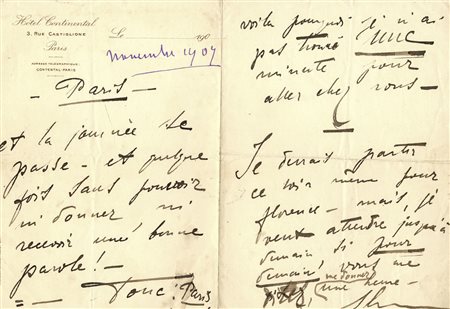 Hôtel Continental
3, Rue Castiglione
Paris
Le 190
novembre 1909
ADRESSE TÉLÉGRAPHIQUE:
CONTENTAL-PARIS
- Paris -
et la journée se
passe - et quelque
fois sans pouvoir
ni donner ni
recevoir une bonne
parole! -
Donc: Paris
voilà pourquoi je n'ai
pas trouvé une
minute pour
aller chez vous -
Je devais partir
ce soir même pour
florence - mais, je
veux attendre jusqu'à
demain si pour
demain, vous me
me donner
une heure -